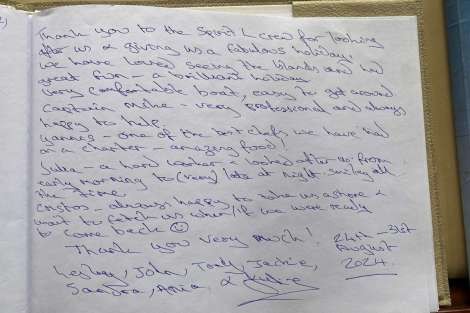 Thank you to the Spirit L crew for looking
after us & giving us a fabulous holiday.
We have loved seeing the Islands and had
great fun - a brilliant holiday
very comfortable boat, easy to get around.
Captain Mike - very professional and always
happy to help.
Yannis - one of the best chefs we have had
on a charter - amazing food!
Julia - a hard worker & looked after us from
early morning to (very) late at night smiling all
the time.
Cristos - always happy to take us ashore &
wait to fetch us when/if we were ready
to come back ☺
Thank you very much! 24th - 31st
August
2024.
Lesley, John, Tony, Jackie,
Sandra, &